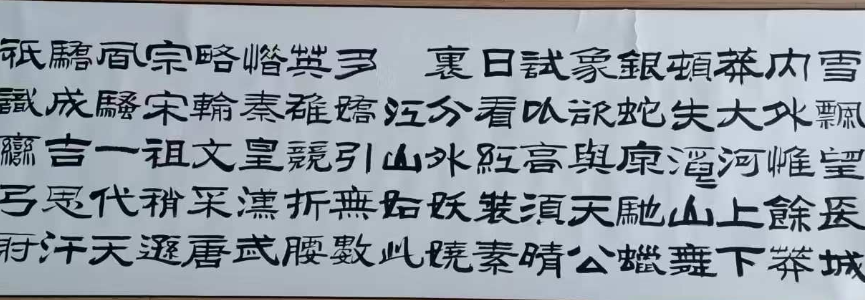 雪飄望長城
内外惟餘莽
莽大河上下
頓失滔〻山舞
銀蛇原馳蠟
象欲與天公
試比高須晴
日看紅裝素
裹分外妖嬈
江山如此
多嬌引無數
英雄競折腰
惜秦皇漢武
略輸文采唐
宗宋祖稍遜
風騷一代天
驕成吉思汗
祇識彎弓射